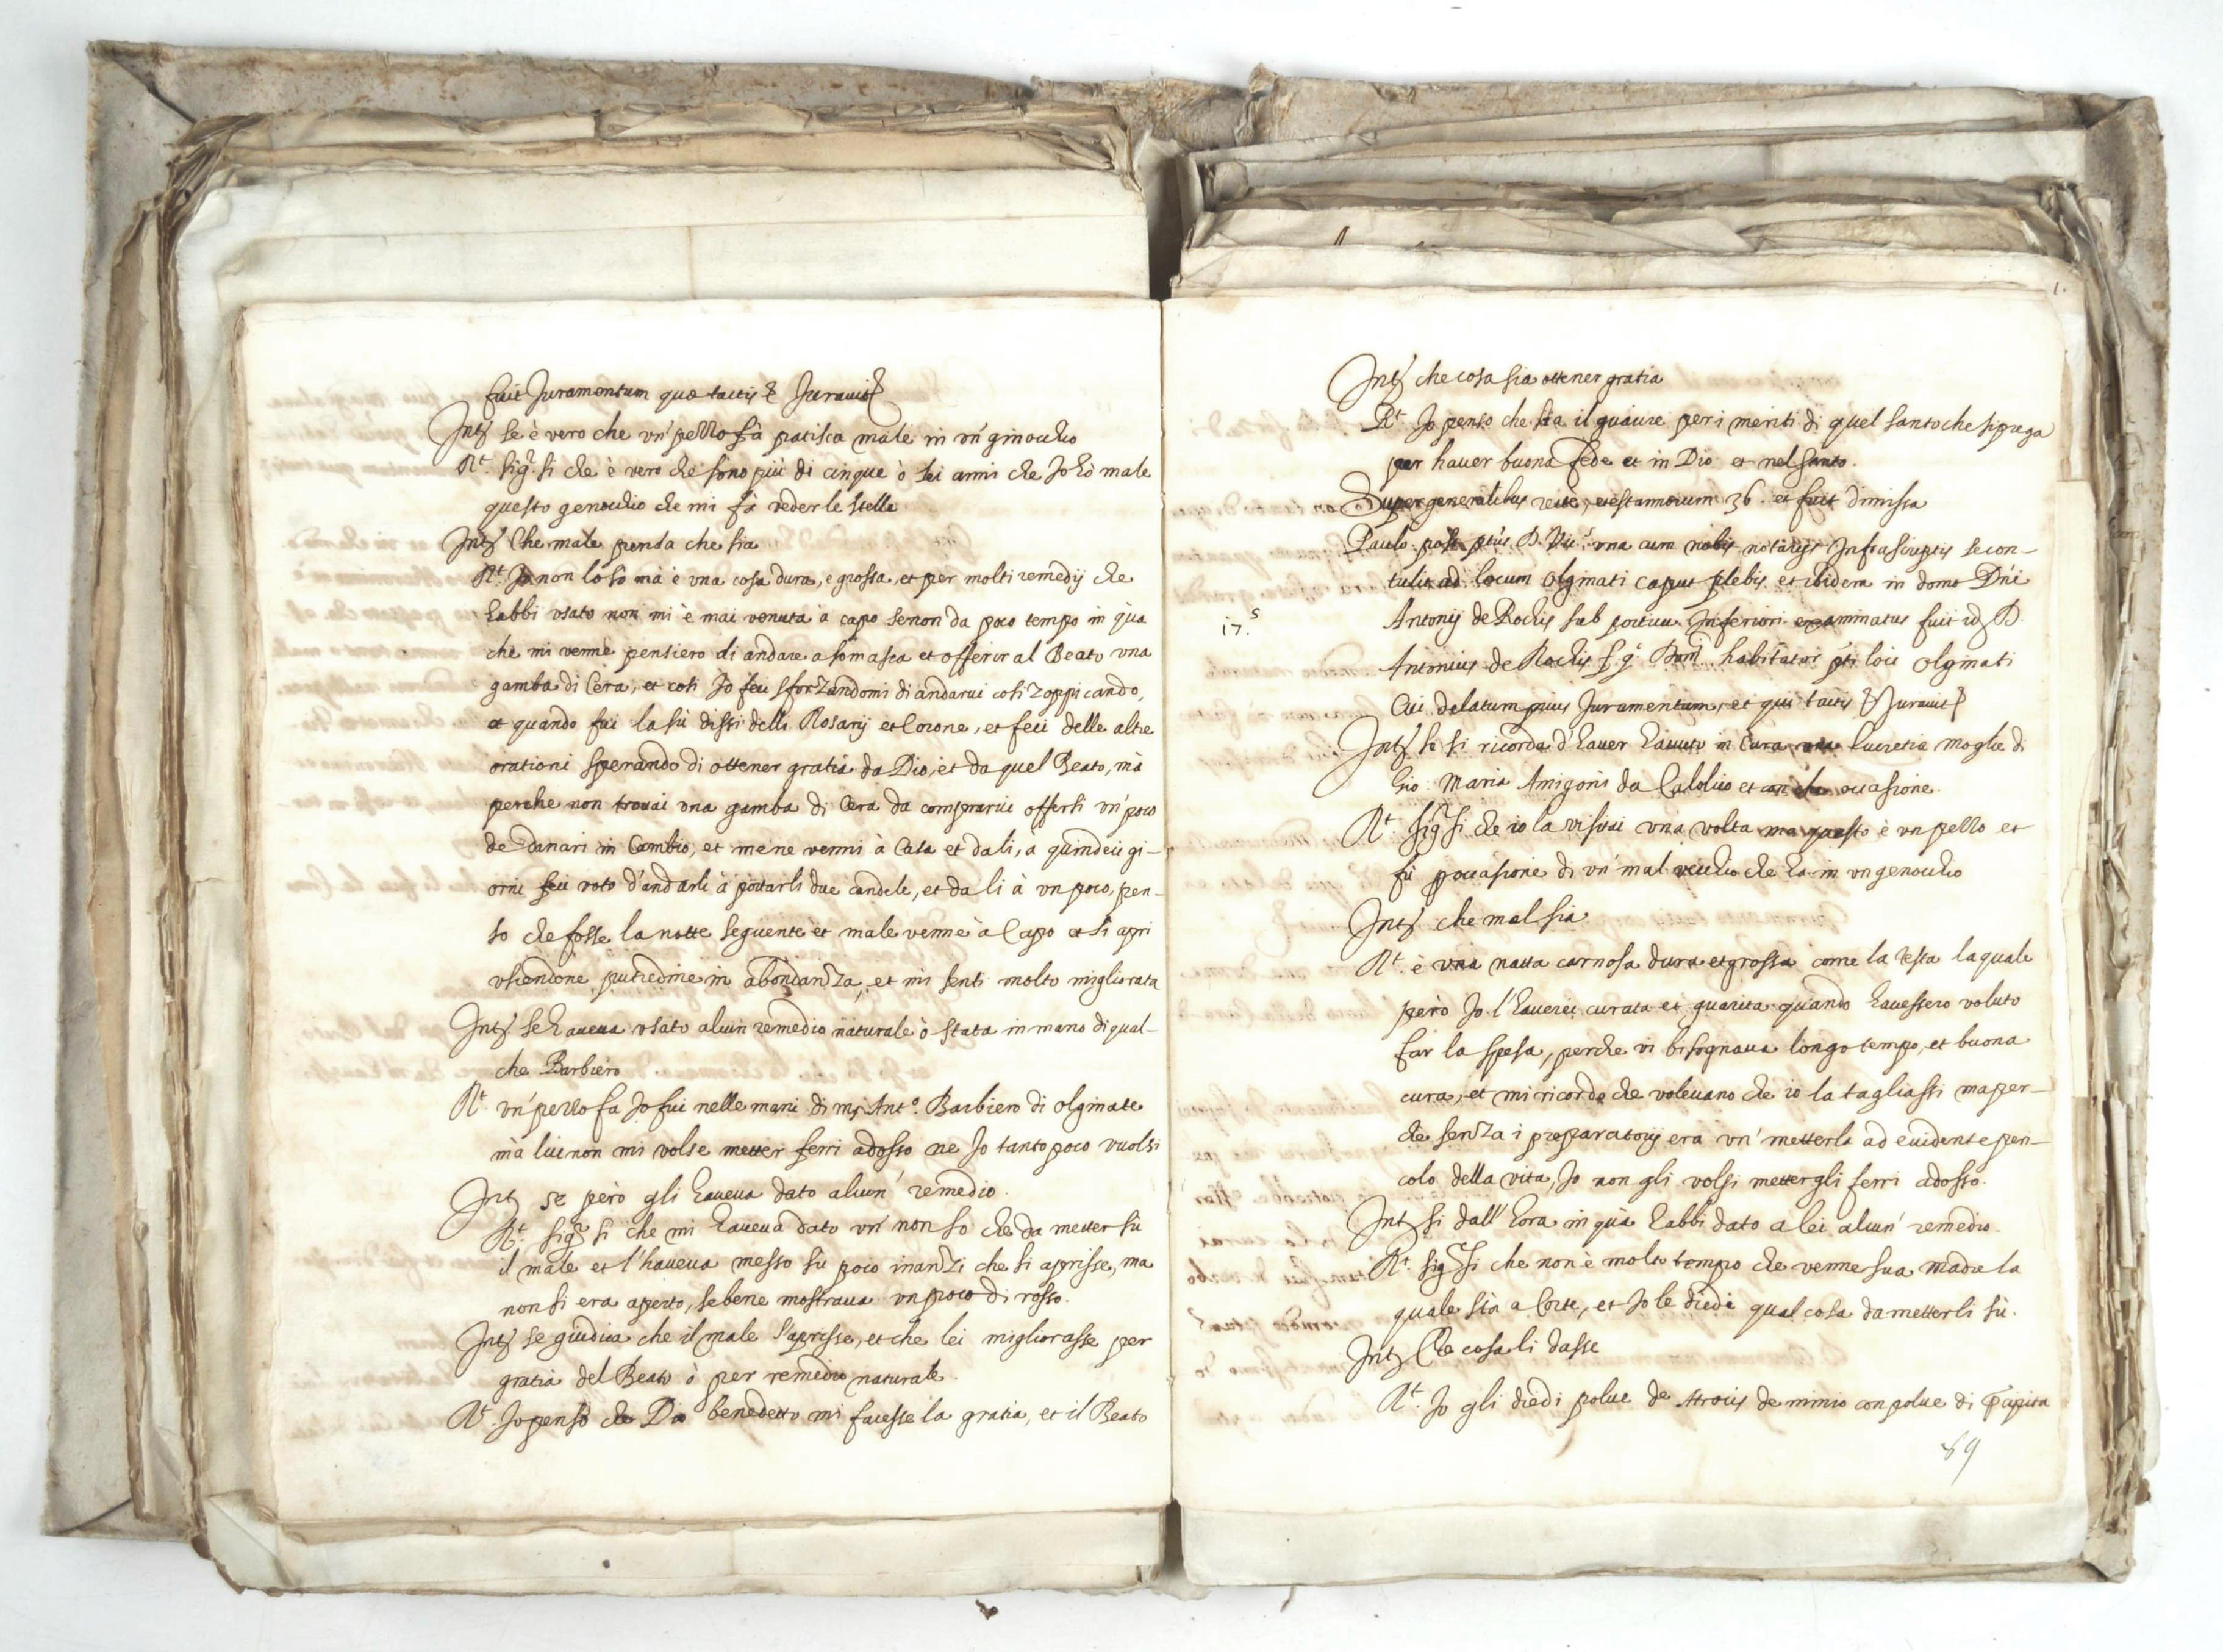 fuit Juramentum quae tactis & Juravit
Int. se è vero che un' pezzo fà patisca male in un' ginochio
Rt. sigr. si che è vero che sono più di cinque ò sei anni che Jo hò male
questo genochio che mi fà veder le stelle
Int. Che male pensa che sia
Rt. Jo non lo so mà è una cosa dura, e grossa, et per molti remedij che
habbi usato non mi è mai venuta à capo senon da poco tempo in qua
che mi venne pensiero di andare a somasca et offerir al Beato una
gamba di Cera, et cosi Jo feci sforzandomi di andarvi cosi zoppicando,
et quando fui la sù dissi delli Rosarij et Corone, et feci delle altre
orationi sperando di ottener gratia da Dio, et da quel Beato, mà
perche non trovai una gamba di Cera da comprarvi offersi un' poco
de danari in Cambio, et mene venni à Casa et da li, à quindeci gi-
orni feci voto d'andarli à portarli due candele, et da li à un poco, pen-
so che fosse la notte seguente et male venne à Capo et si apri
usciendone putredine in abondanza, et mi senti molto migliorata
Int. se haveva usato alcun remedio naturale ò stata in mano di qual-
che Barbiero
Rt. un' pezzo fa Jo fui nelle mani di mr. Anto. Barbiero di olginate
mà lui non mi volse metter ferri adosso ne Jo tanto poco vuolsi
Int. se però gli haveva dato alcun' remedio.
Rt. sigr. si che mi haveva dato un' non so che da metter sù
il male et l'haveva messo su poco inanzi che si aprisse, ma
non si era aperto, sebene mostrava un poco di rosso.
Int. se giudica che il male s'aprisse, et che lei migliorasse per
gratia del Beato ò per remedio naturale.
Rt. Jo penso che Dio benedetto mi facesse la gratia, et il Beato
1.
Int. che cosa sia ottener gratia
Rt. Jo penso che sia il guarire per i meriti di quel santo che si prega
per haver buona fede et in Dio et nel santo.
Super generalibus recte, et est annorum 36. et fuit dimissa
Paulo post ptus D. Vic. una cum nobis notarijs Infrascriptis se con-
tulit ad locum Olginati caput plebis, et ibidem in domo Dni
17.s
Antonij de Rochis sub porticu Inferiori examinatus fuit id D.
Antonius de Rochis f. q. habitator pti loci Olginati
Cui delatum prius Juramentum, et qui tactis & Juravit
Int. se si ricorda d'haver havuto in Cura una Lucretia moglie di
Gio: Maria Amigoni da Calolcio et con che occasione.
Rt. sigr. si che io la visitai una volta ma questo è un pezzo et
fù p occasione di un' mal vecchio che ha in un genochio
Int. che mal sia
Rt. è una natta carnosa dura et grossa come la testa laquale
però Jo l'haverei curata et guarita quando havessero voluto
far la spesa, perche vi bisognava longo tempo, et buona
cura, et mi ricordo che volevano che io la tagliassi ma per-
che senza i preparatorij era un' metterla ad evidente peri-
colo della vita, Jo non gli volsi mettergli ferri adosso.
Int. si dall' hora in quà habbi dato a lei alcun' remedio.
Rt. sigr. si che non è molto tempo che venne sua Madre la
quale stà a Corte, et Jo le diedi qual cosa da metterli sù.
Int. Che cosa li dasse
Rt. Jo gli diedi polve de de minio con polve di
89